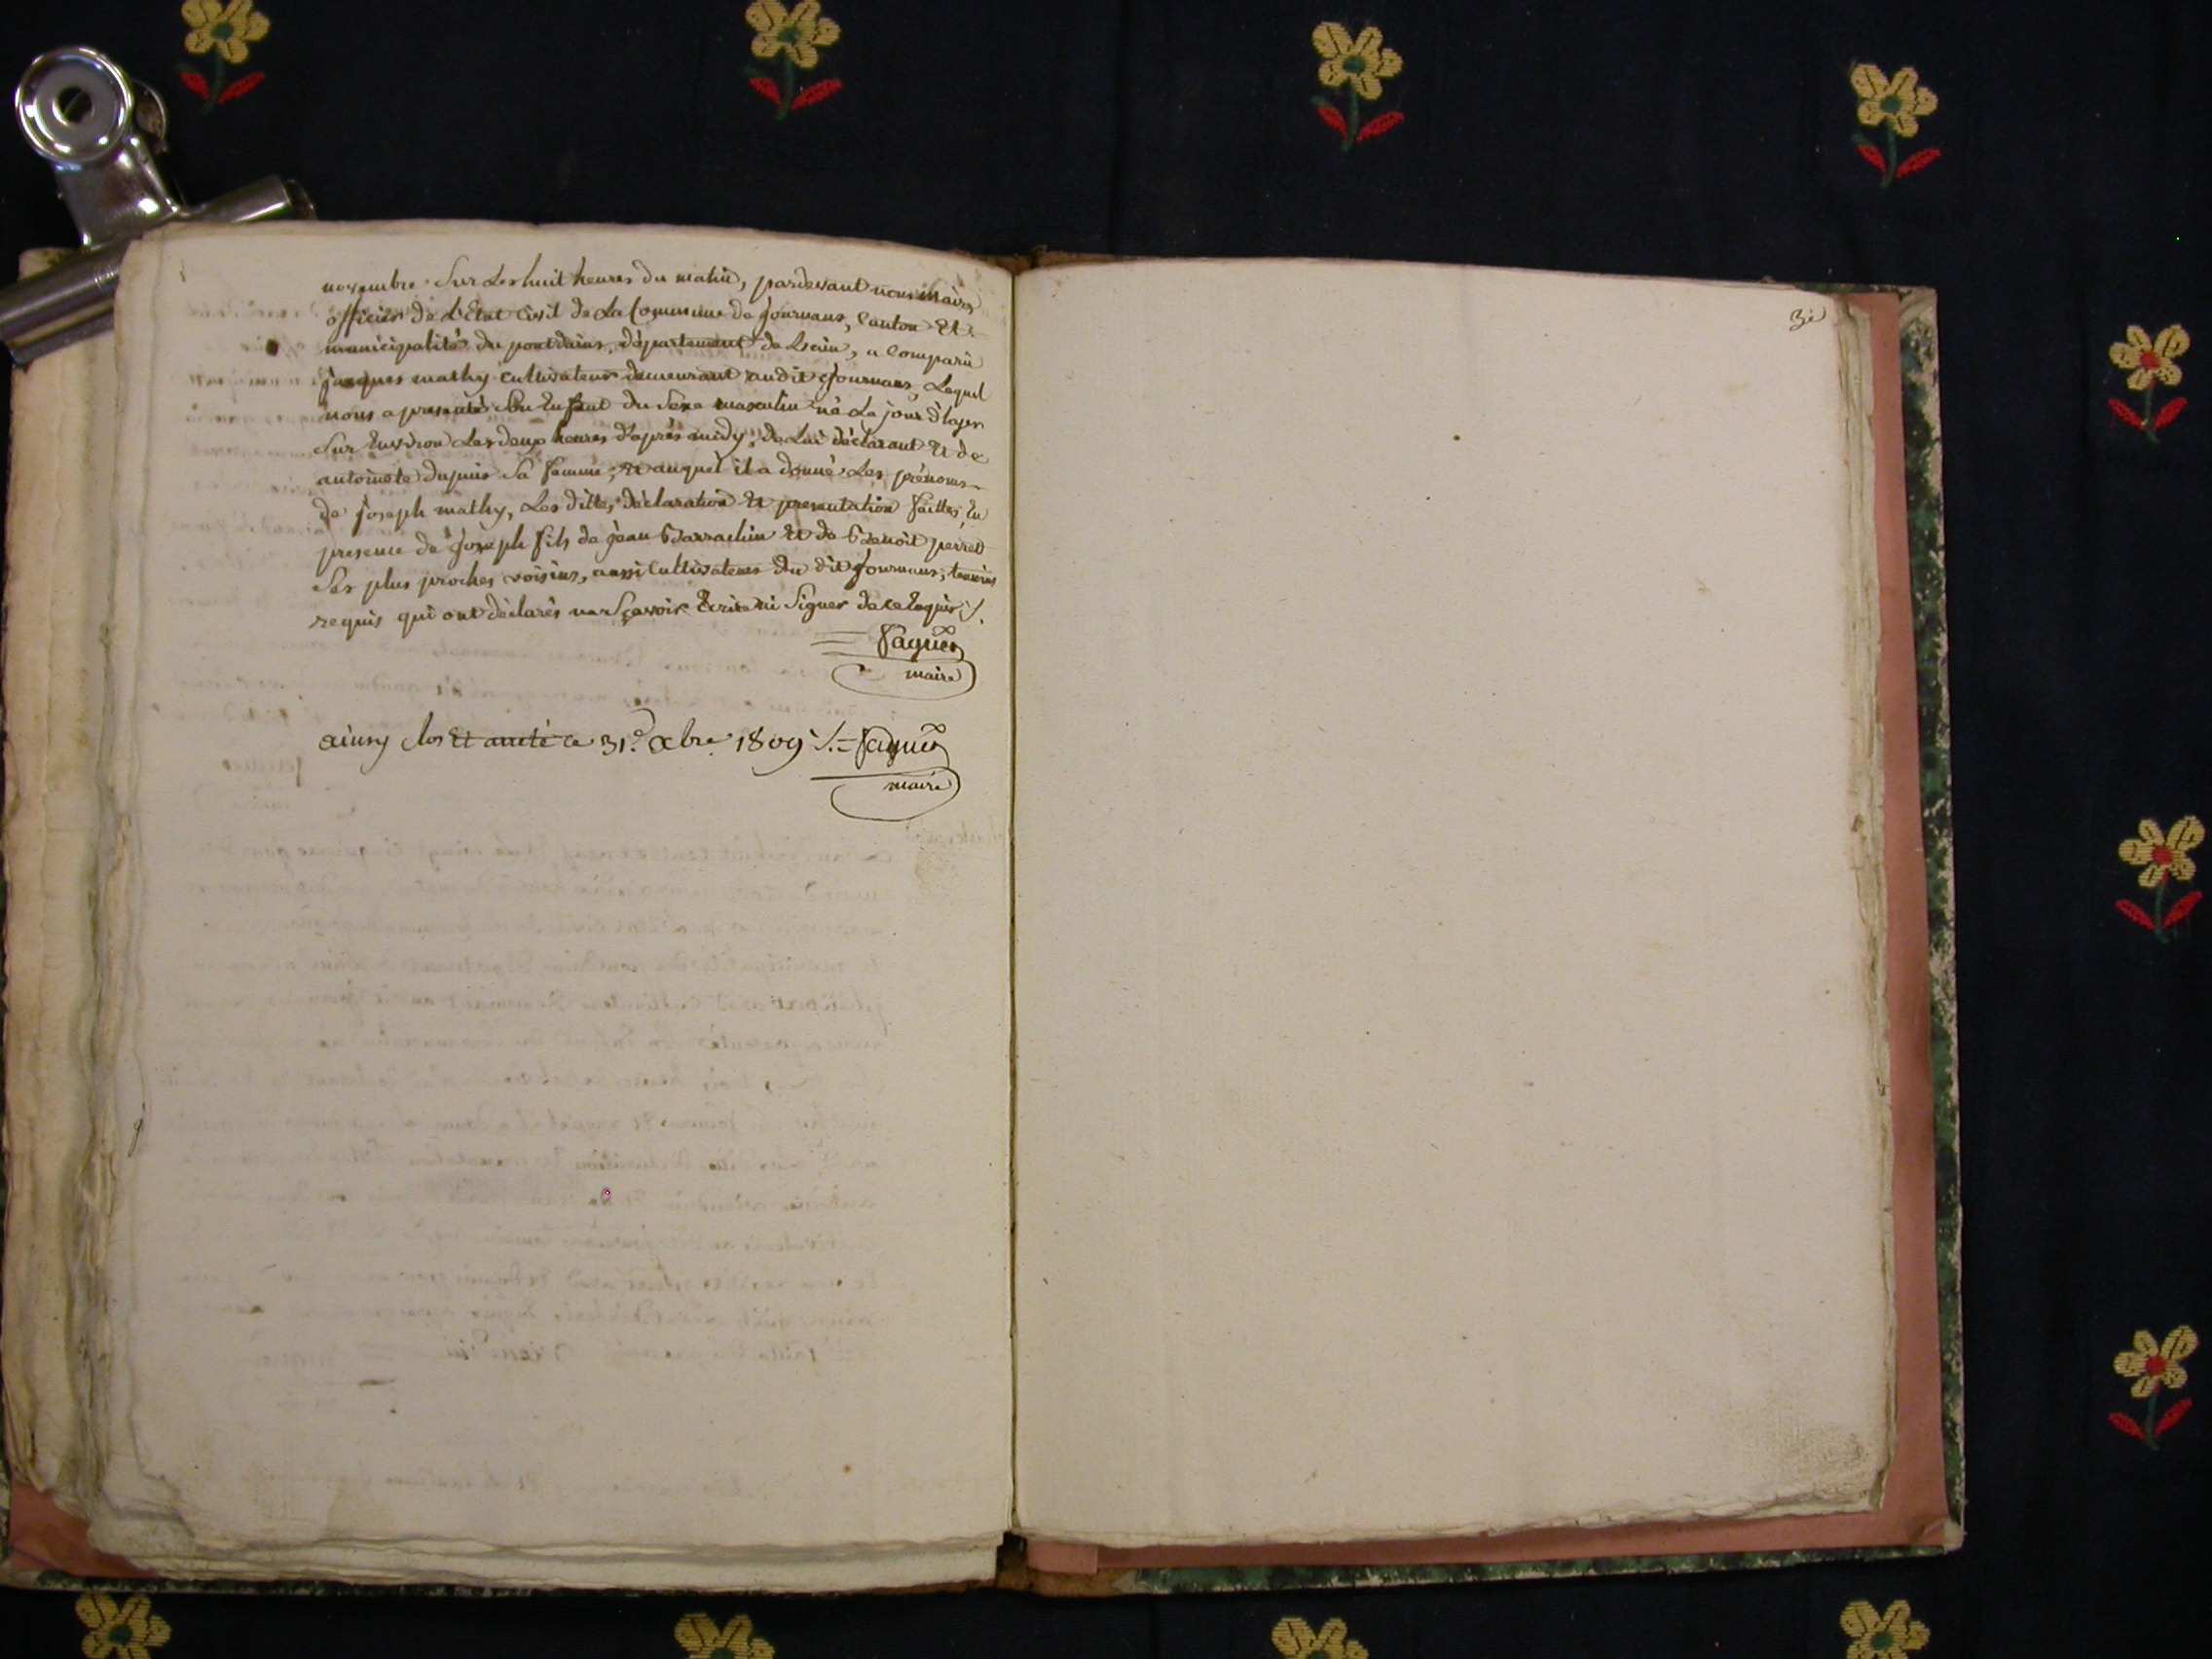 novembre Sur Les huit heures du matin, pardevant nous maire
officier de L'Etat Civil de La Commune de Journans, Canton Et
municipalité du pontdains, département de L'ain, a Comparû
jacques mathy cultivateur demeurant audit Journans, Lequel
nous a presenté Un Enfant du Sexe masculin né Le jour d'hyer
Sur Environ Les deux heures d'après midy, de Lui déclarant Et de
antoinete dupuis Sa femme, Et auquel il a donné Les prénoms
de joseph mathy, Les dittes déclaration Et presentation faittes En
presence de joseph fils de jean Et de Benoit perret
Ses plus proches voisins, aussi Cultivateurs du dit Journans, temoins
requis qui ont déclarés ne Sçavoir Ecrire ni Signer de ce Enquis ./.
maire
ainsy clos Et arreté ce 31.e Xbre 1809 ./.
maire
31